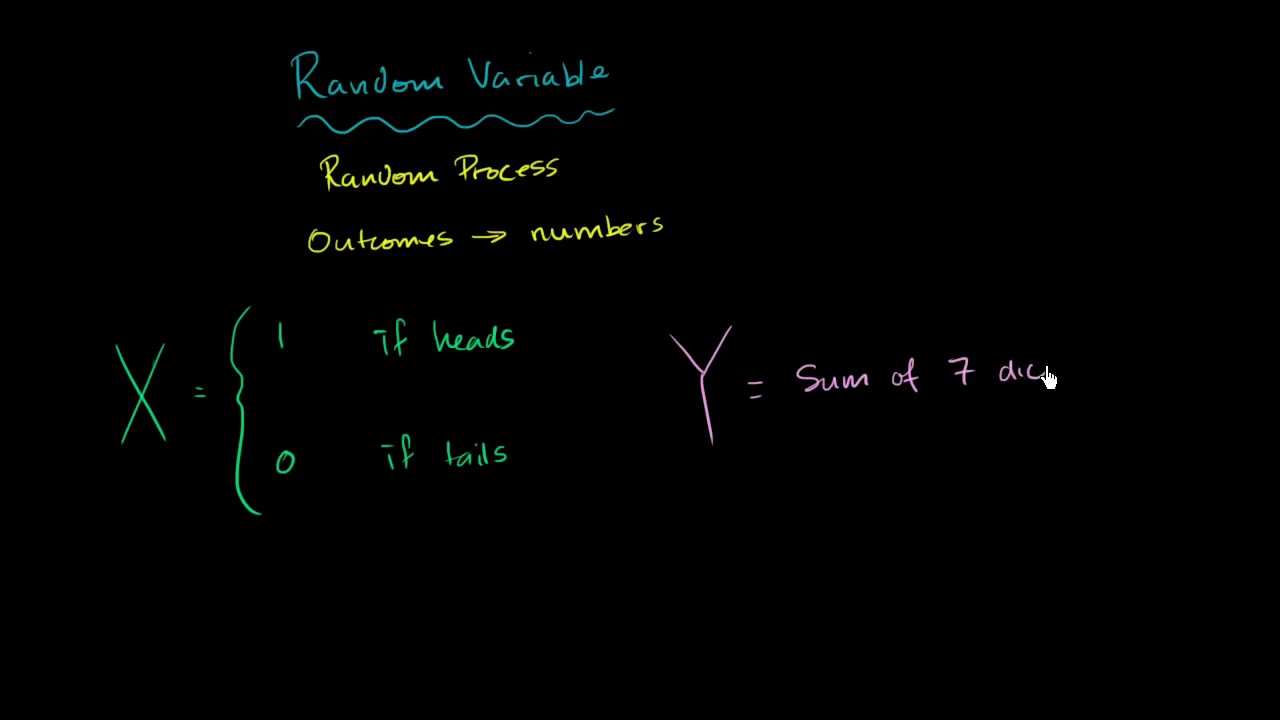 Random Variable
Random Process
Outcomes → numbers
X = { 1 if heads
0 if tails
Y = Sum of 7 dic